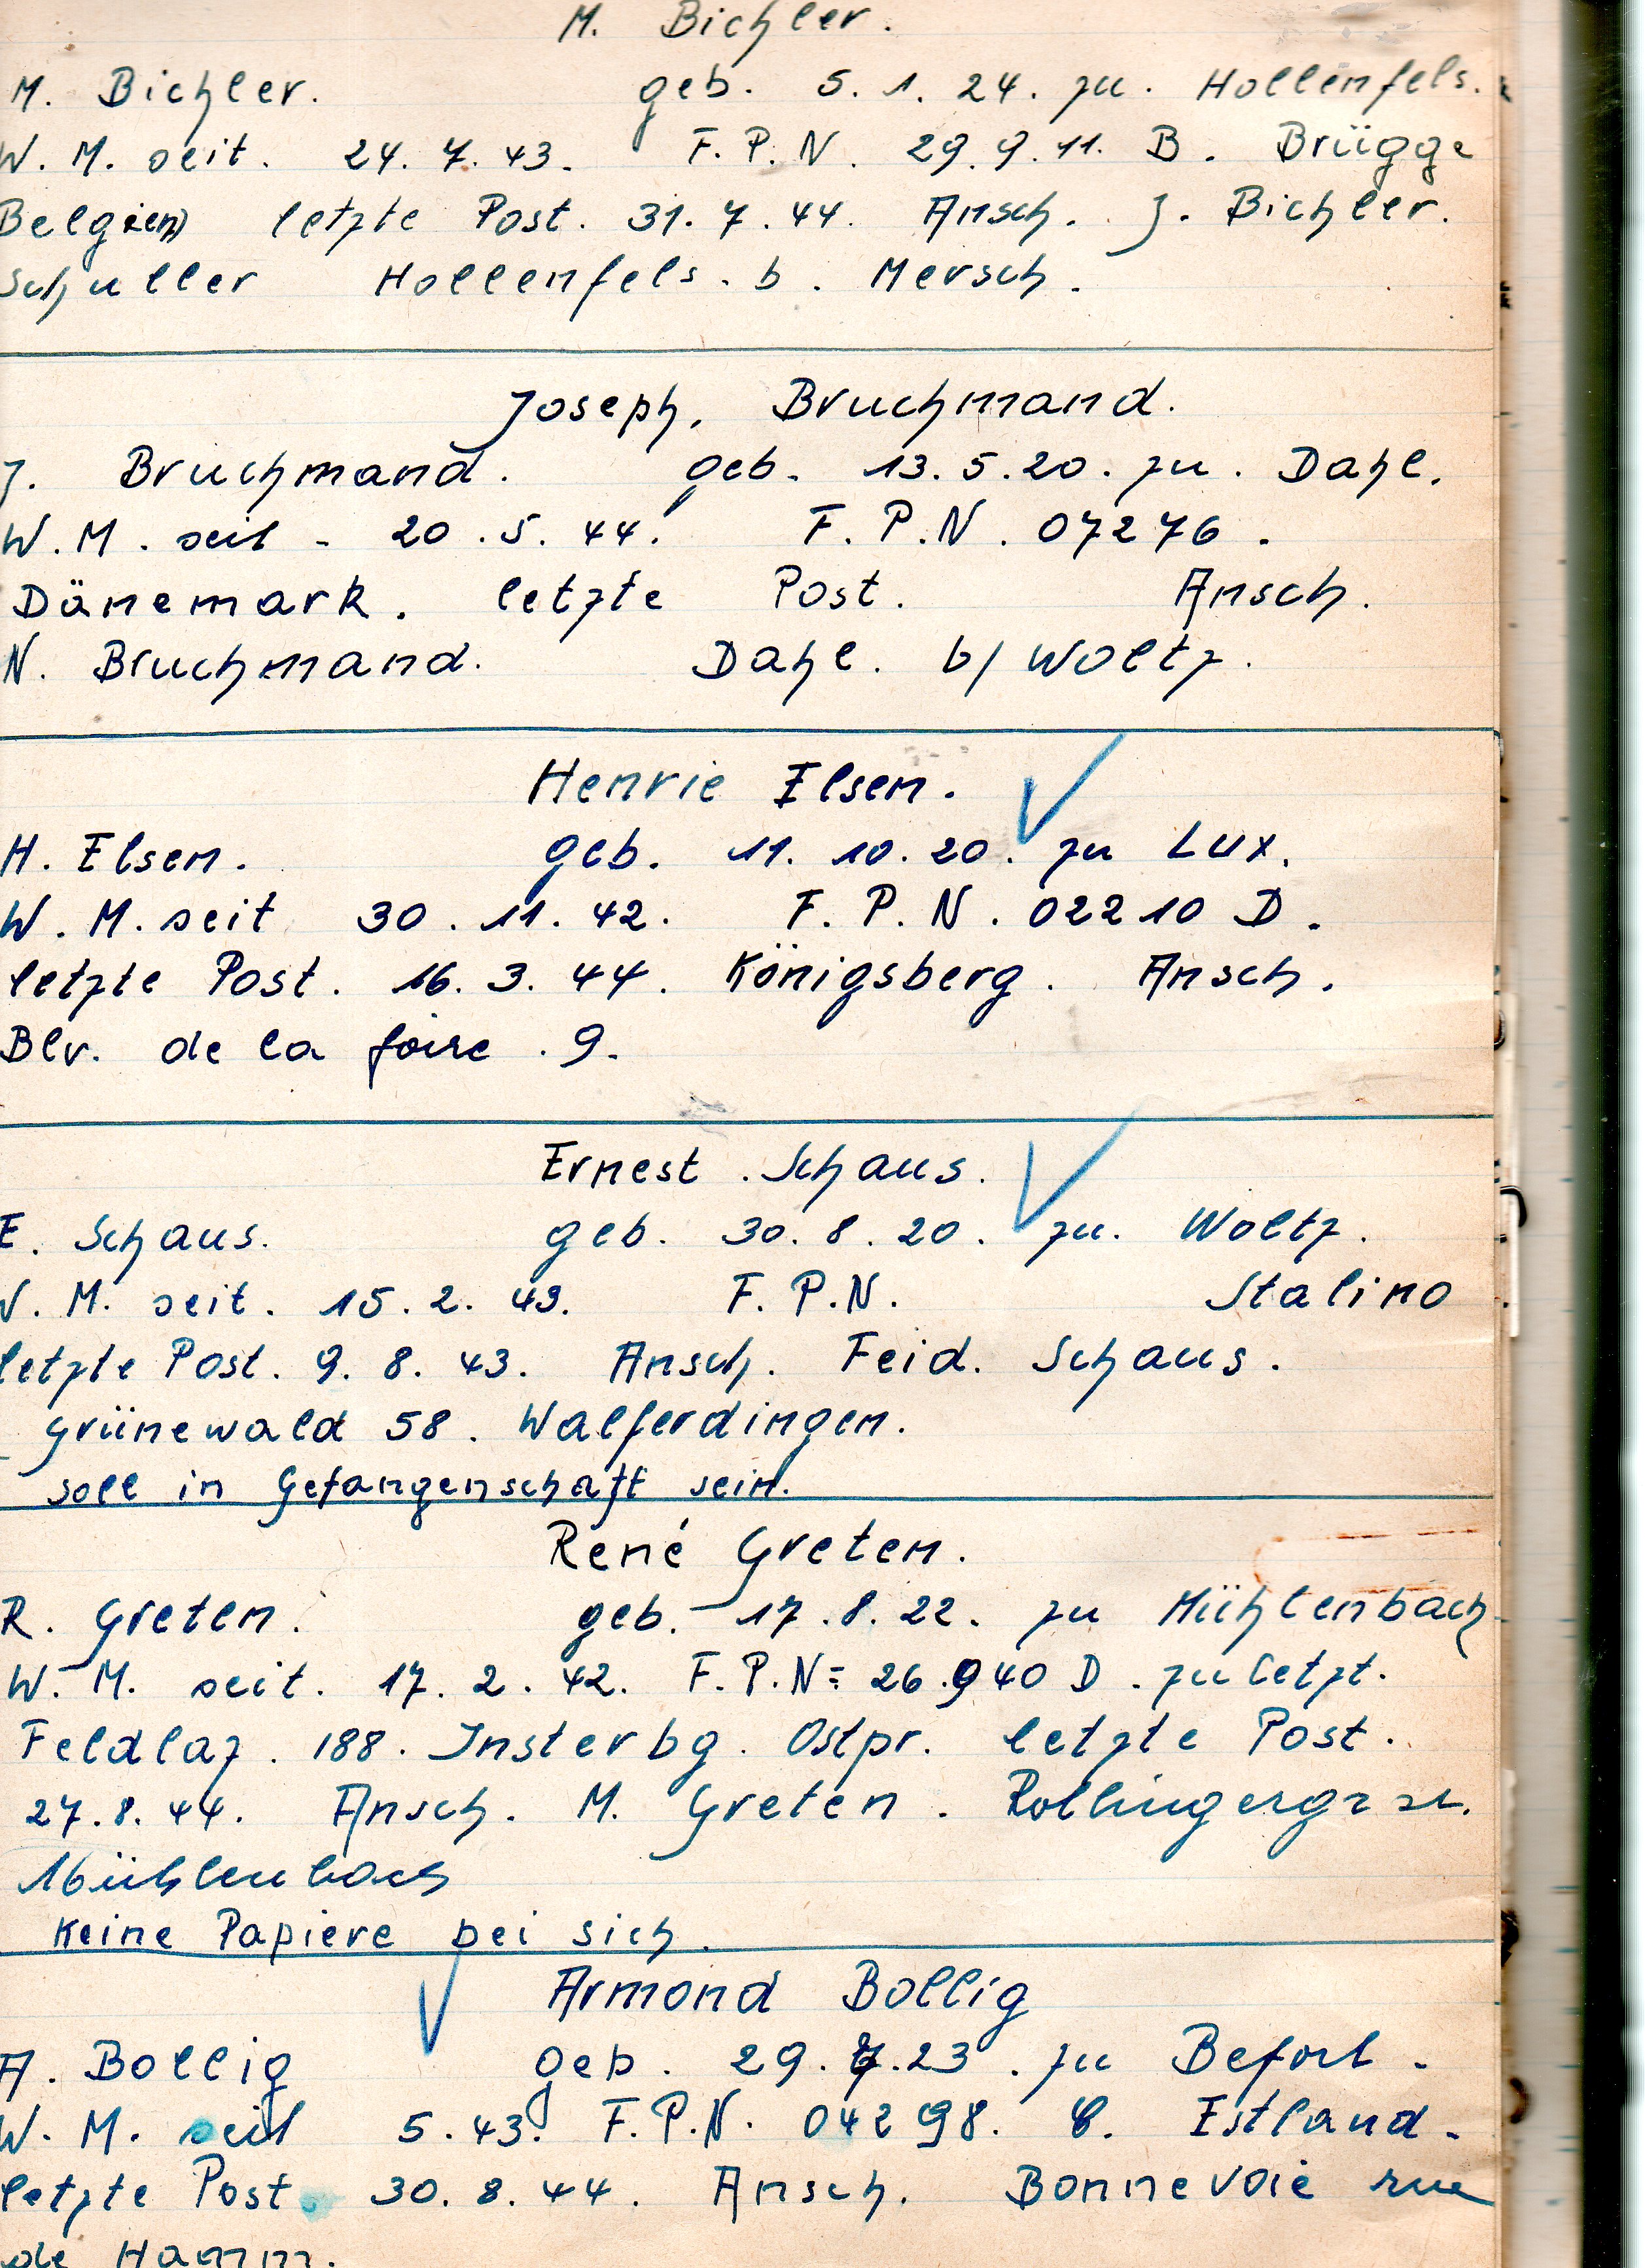 M. Bichler.
M. Bichler. geb. 5. 1. 24. zu. Hollenfels.
W. M. seit. 24. 7. 43. F. P. N. 29. 9. 11. B. Brügge
Belgien) letzte Post. 31. 7. 44. Ansch. J. Bichler.
Schuller Hollenfels. b. Mersch.
Joseph, Bruchmand.
J. Bruchmand. geb. 13. 5. 20. zu. Dahl.
W. M. seit - 20. 5. 44. F. P. N. 07276.
Dänemark. letzte Post. Ansch.
N. Bruchmand. Dahl. b/ Woltz.
Henrie Elsen.
H. Elsen. geb. 11. 10. 20. zu Lux.
W. M. seit 30. 11. 42. F. P. N. 02210 D.
letzte Post. 16. 3. 44. Königsberg. Ansch.
Blv. de la foire. 9.
Ernest. Schaus.
E. Schaus. geb. 30. 8. 20. zu. Woltz.
W. M. seit. 15. 2. 43. F. P. N. Stalino
letzte Post. 9. 8. 43. Ansch. Feid. Schaus.
Grünewald 58. Walferdingen.
soll in Gefangenschaft sein.
René Greten.
R. Greten. geb. 17. 8. 22. zu Mühlenbach
W. M. seit. 17. 2. 42. F. P. N= 26.940 D. zuletzt.
Feldlaz. 188. Insterbg. Ostpr. letzte Post.
27. 8. 44. Ansch. M. Greten.
Mühlenbach
Keine Papiere bei sich.
Armond Bollig
A. Bollig geb. 29. 7. 23. zu Befort.
W. M. seit 5. 43. F. P. N. 04298. C. Estland.
letzte Post. 30. 8. 44. Ansch. Bonnevoie rue
de Hamm.